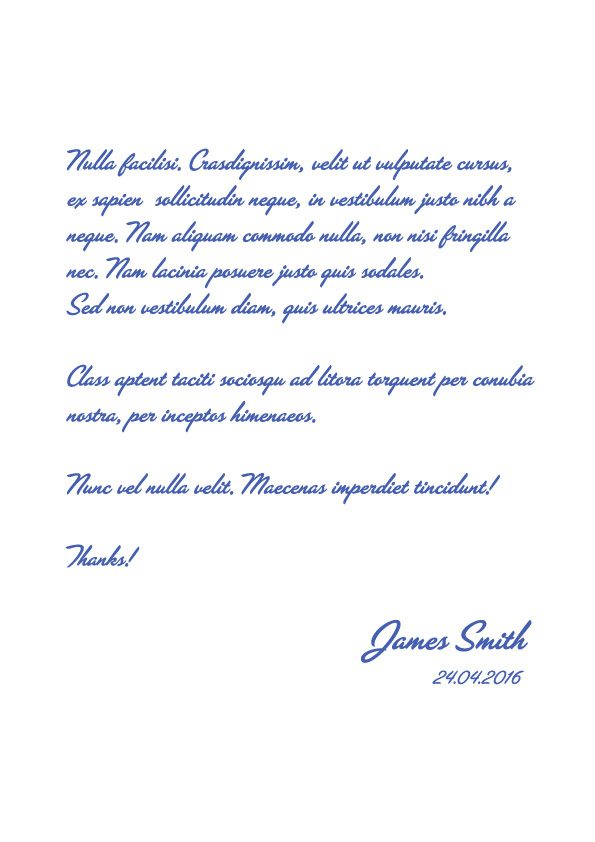 Nulla facilisi. Crasdignissim, velit ut vulputate cursus,
ex sapien  sollicitudin neque, in vestibulum justo nibh a
neque. Nam aliquam commodo nulla, non nisi fringilla
nec. Nam lacinia posuere justo quis sodales.
Sed non vestibulum diam, quis ultrices mauris.
Class aptent taciti sociosqu ad litora torquent per conubia
nostra, per inceptos himenaeos.
Nunc vel nulla velit. Maecenas imperdiet tincidunt!
Thanks!
James Smith
24.04.2016